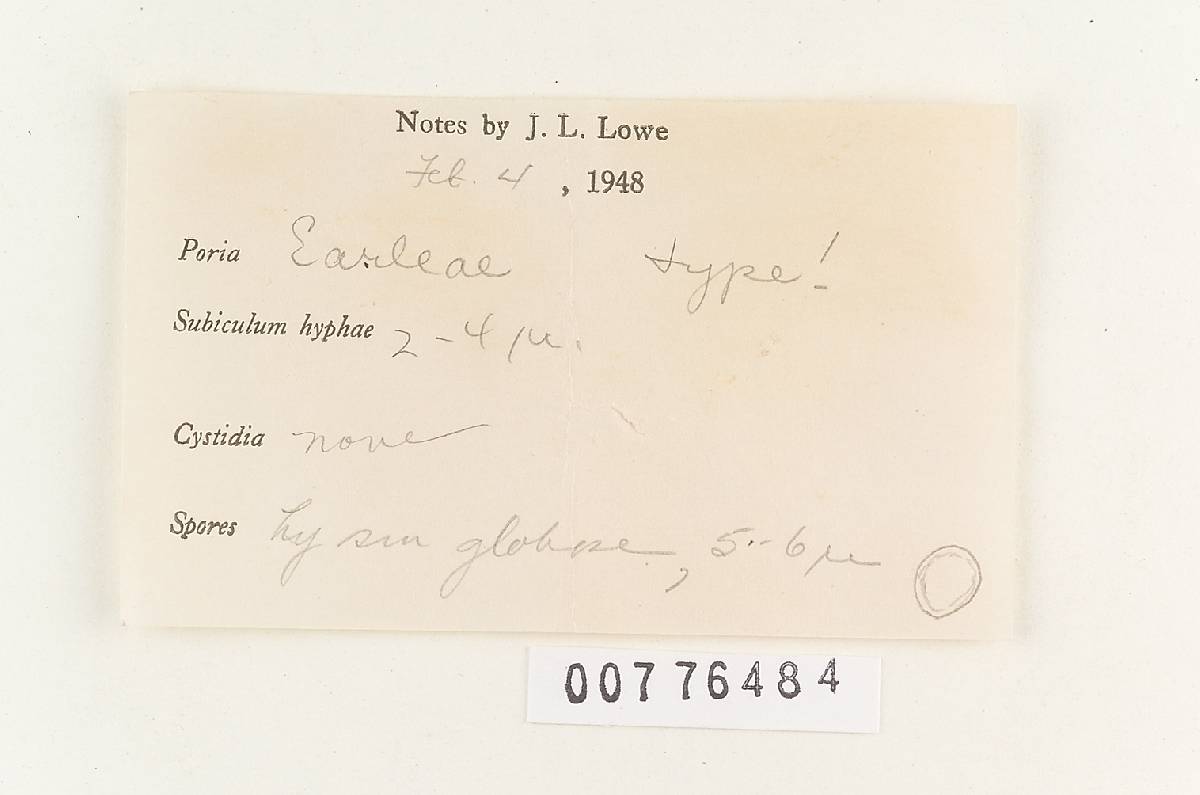 Notes by J. L. Lowe
Feb. 4, 1948
Poria Earleae type!
Subiculum hyphae 2-4 µ.
Cystidia none
Spores hy sm globose, 5-6 µ
00776484